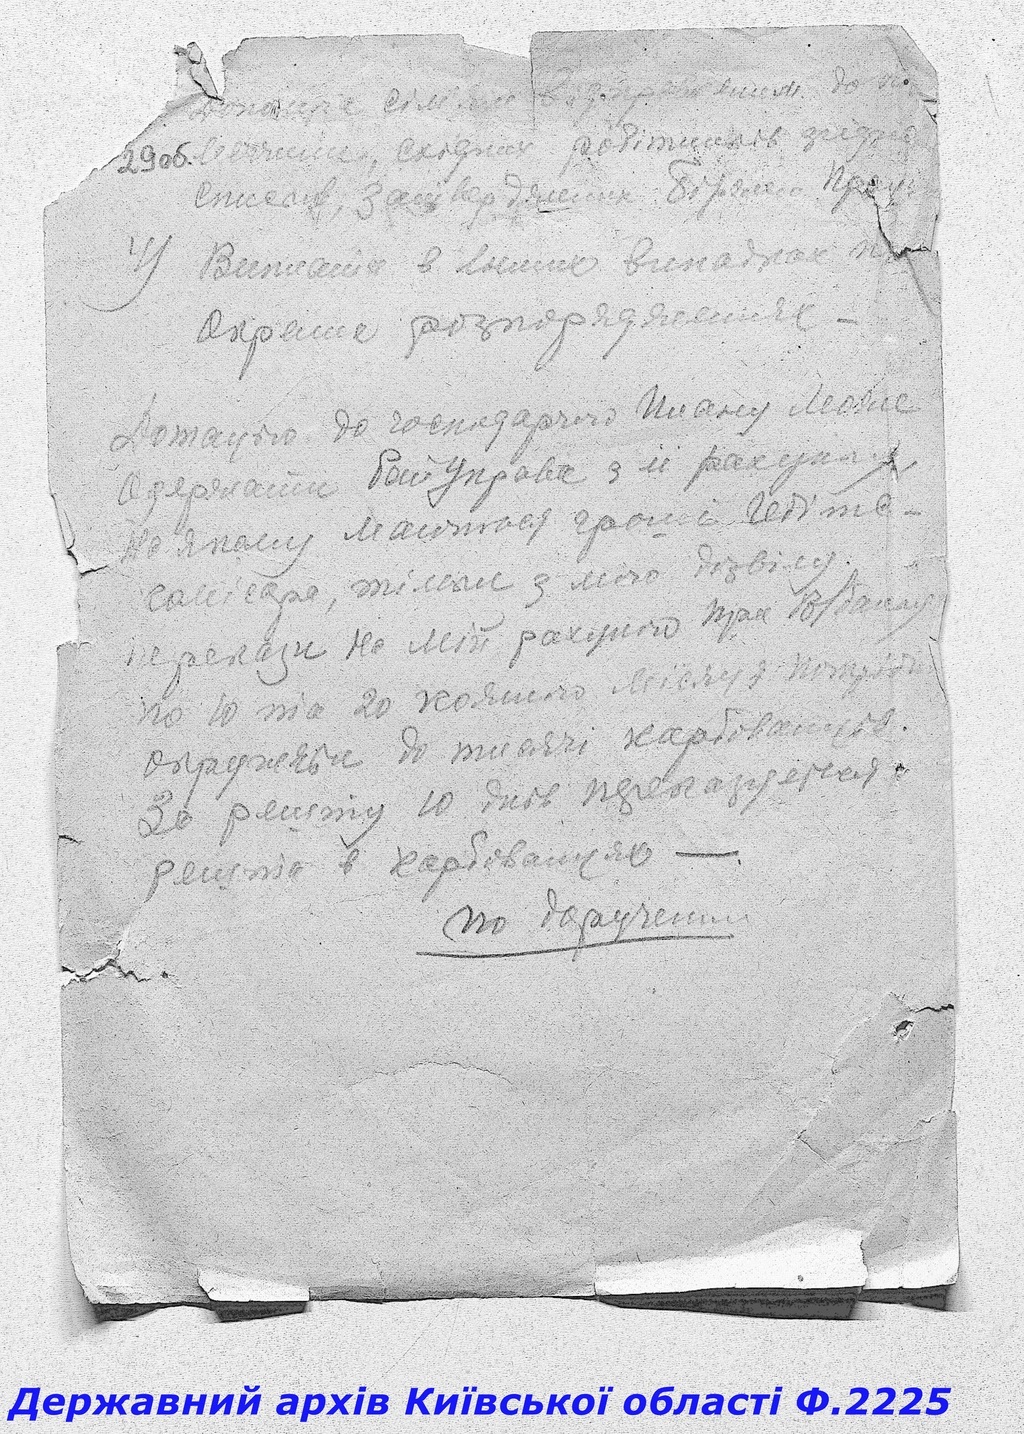 Допомога сім'ям відправлених до Ні
29об. меччини, східних робітників згідно
списків, затверджених Біржею Праці
4) Виплати в інших випадках по
окреме розпорядження —
Дотацію до господарчого плану може
одержати РайУправа з мі рахунку
на якому маються гроші Гебітс-
комісара, тільки з мого дозвілу.
перекази на мій рахунок при В/банку
по 10 та 20 кожного місяця потрібно
до тисячі карбованців.
За решту 10 днів переказується
решта в карбованцях —
по доручению
Державний архів Київської області Ф.2225